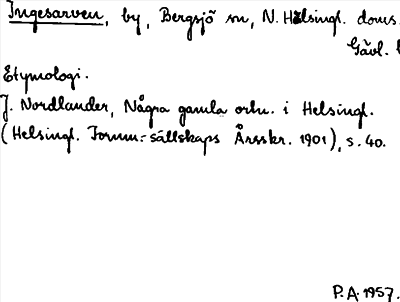 Ingesarven, by, Bergsjö sn, N. Hälsingl. doms.
Gävl. l
Etymologi.
J. Nordlander, Några gamla ortn. i Helsingl.
(Helsingl. Fornm.-sällskaps Årsskr. 1901), s. 40.
P.A. 1957.